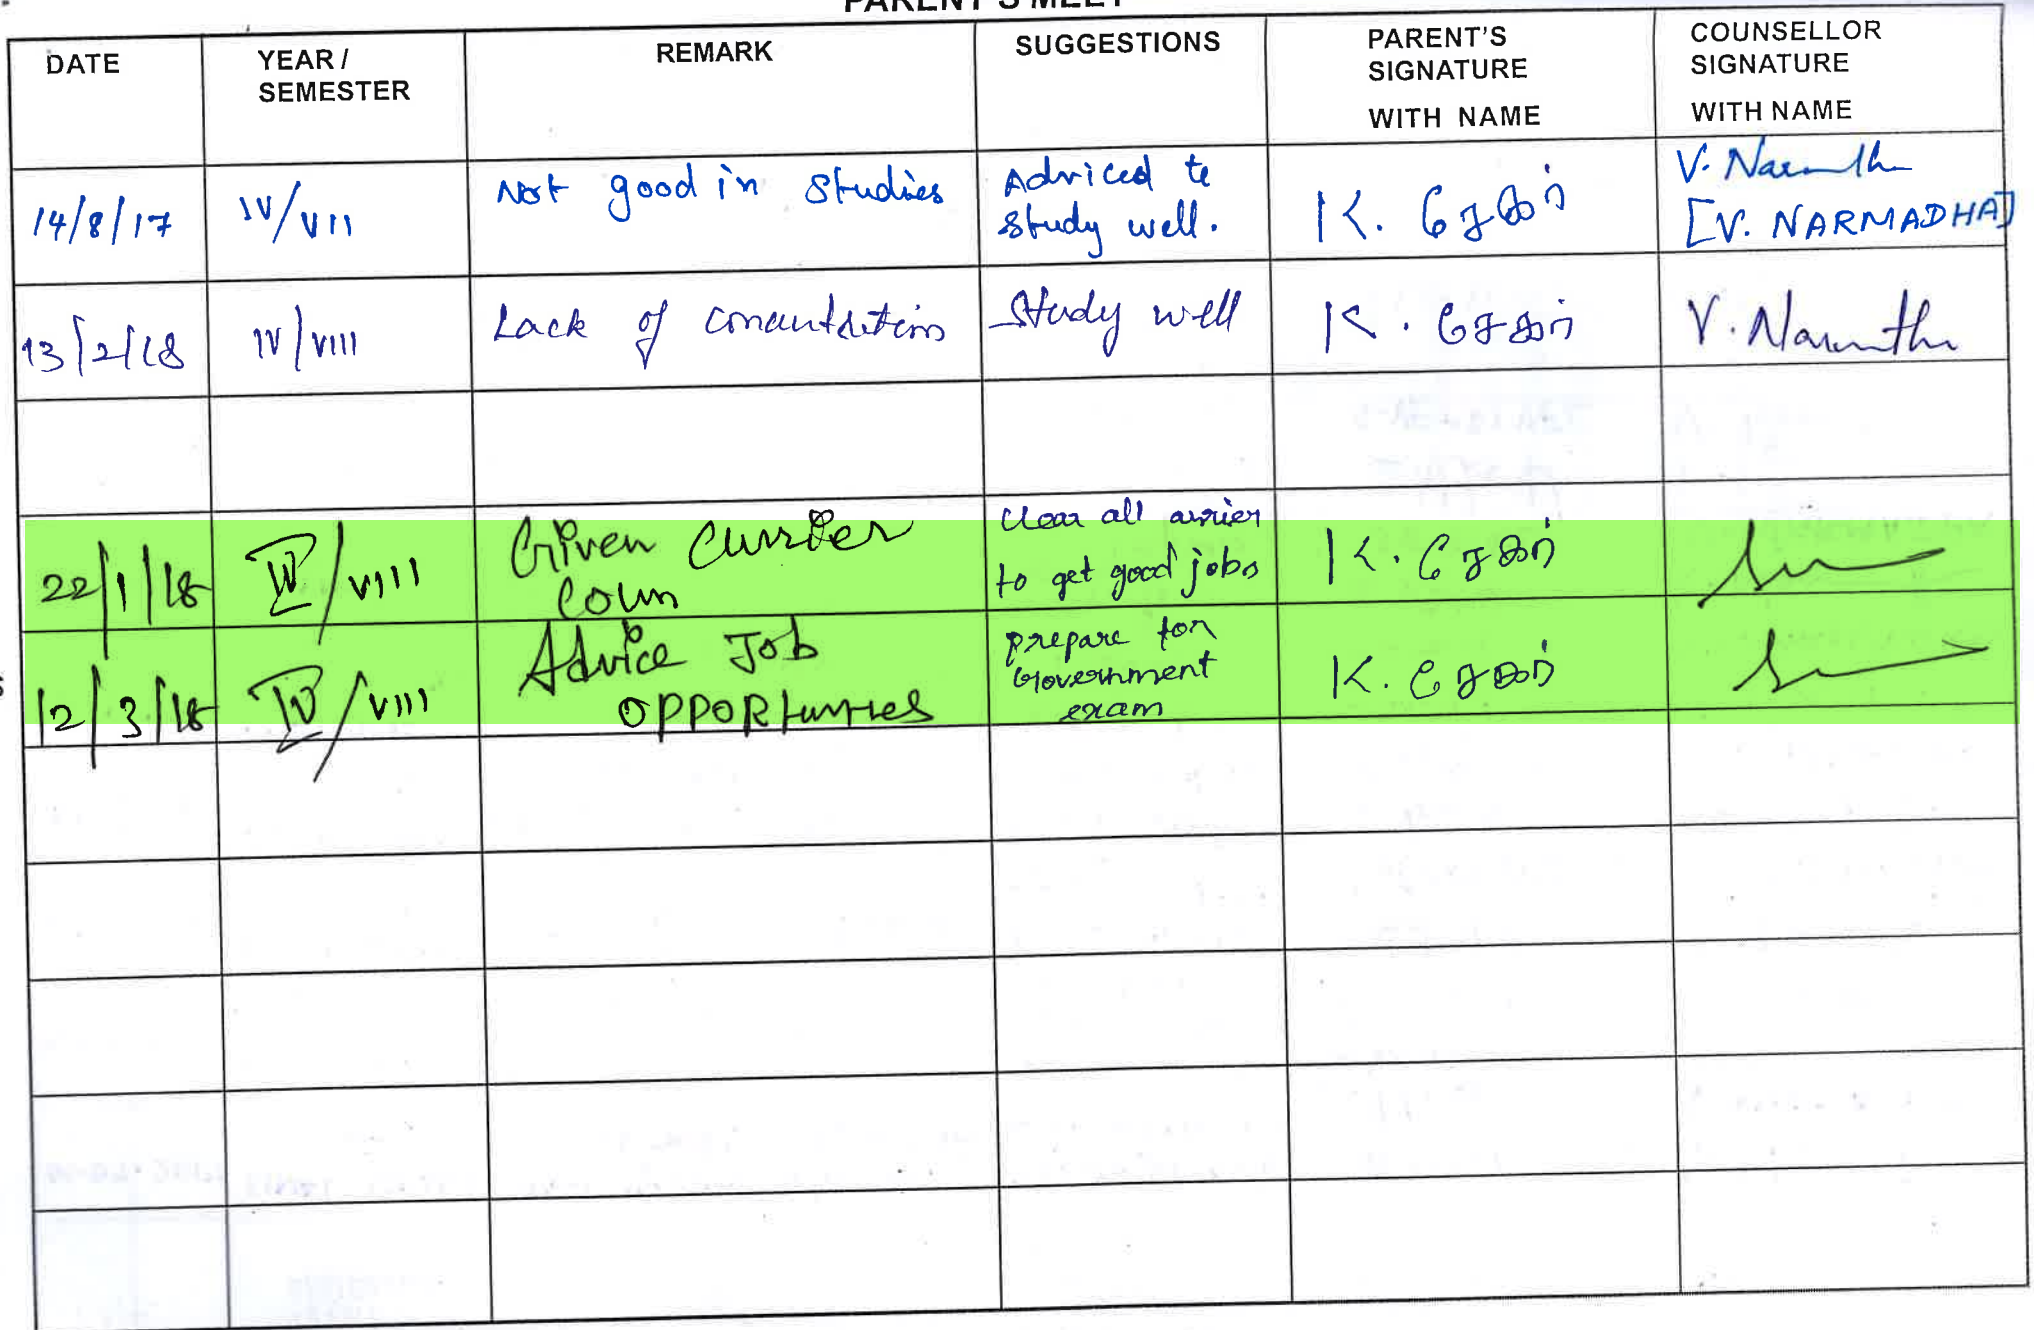 PARENT'S MEET
DATE
YEAR / SEMESTER
REMARK
SUGGESTIONS
PARENT'S SIGNATURE WITH NAME
COUNSELLOR SIGNATURE WITH NAME
14/8/17
IV/VII
Not good in Studies
Adviced to
study well.
K. சேகர்
V. Narmadha
[V. NARMADHA]
13/2/18
IV/VIII
Lack of
Study well
K. சேகர்
V.
22/1/18
IV/VIII
Given
clear all arrier
to get good jobs
K. சேகர்
12/3/18
IV/VIII
Advice Job
OPPORtunities
prepare for
Government
exam
K. சேகர்